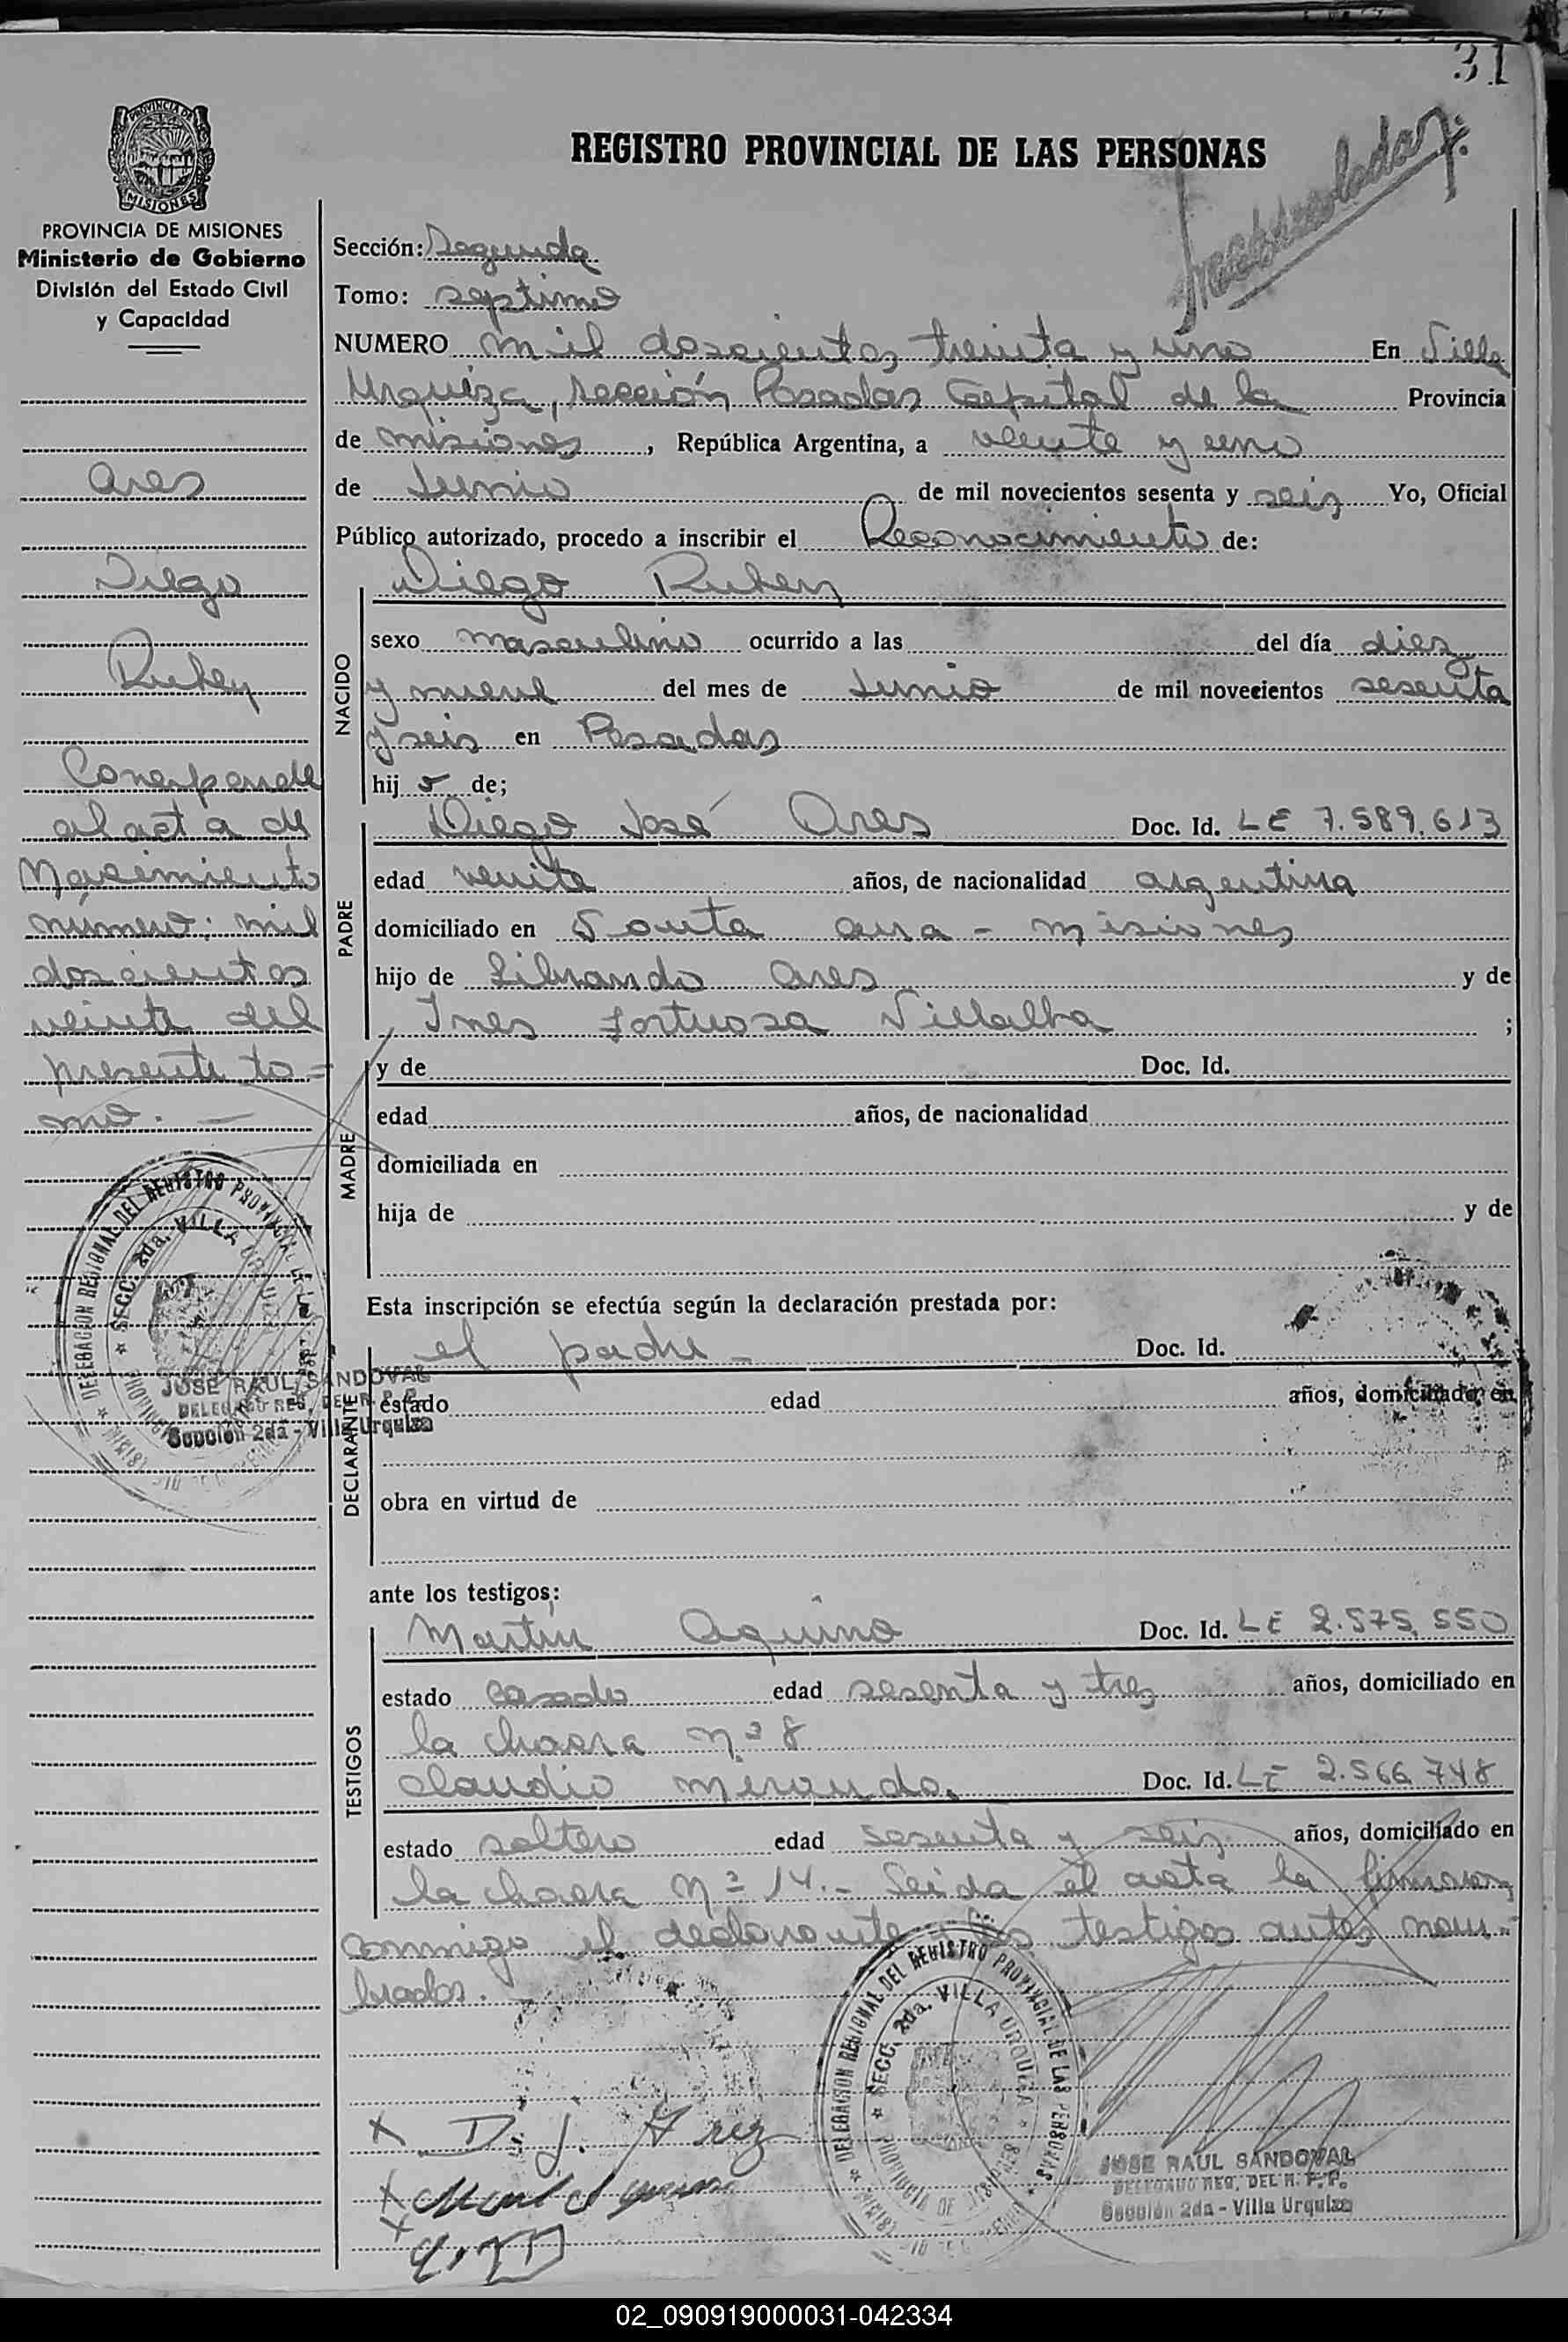 31
PROVINCIA DE
MISIONES
REGISTRO PROVINCIAL DE LAS PERSONAS
PROVINCIA DE MISIONES
Ministerio de Gobierno
División del Estado Civil
y Capacidad
Sección: Segunda
Tomo: septimo
NUMERO mil doscientos treinta y uno En Villa
Urquiza, sección Posadas Capital de la Provincia
de misiones, República Argentina, a veinte y uno
de Junio de mil novecientos sesenta y seis Yo, Oficial
Público autorizado, procedo a inscribir el Reconocimiento de:
Ares
Diego
Ruben
Corresponde
al acta de
Nacimiento
número: mil
doscientos
veinte del
presente to=
mo. —
NACIDO
Diego Ruben
sexo masculino ocurrido a las del día diez
y nueve del mes de Junio de mil novecientos sesenta
y seis en Posadas
hijo de;
PADRE
Diego José Ares Doc. Id. LE 7.589.613
edad veinte años, de nacionalidad argentina
domiciliado en Santa ana - misiones
hijo de Librando Ares y de
Ines Fortuosa Villalba ;
MADRE
y de Doc. Id.
edad años, de nacionalidad
domiciliada en
hija de y de
Esta inscripción se efectúa según la declaración prestada por:
DECLARANTE
el padre - Doc. Id.
estado edad años, domiciliado en
obra en virtud de
DELEGACION REGIONAL DEL REGISTRO PROVINCIAL
SECC. 2da. VILLA URQUIZA
JOSE RAUL SANDOVAL
DELEGADO REG. DEL R. P. P.
Sección 2da - Villa Urquiza
ante los testigos:
TESTIGOS
Martin Aquino Doc. Id. LE 2.575.550
estado casado edad sesenta y tres años, domiciliado en
la chacra nº 8
claudio miranda. Doc. Id. LE 2.566.748
estado soltero edad sesenta y seis años, domiciliado en
la chacra Nº 14.- Leida el acta la firmaron
conmigo el declarante los testigos antes nom=
brados.
DELEGACION REGIONAL DEL REGISTRO PROVINCIAL DE LAS PERSONAS
SECC. 2da. VILLA URQUIZA
PROVINCIA DE MISIONES
x D. J. Arez
x
x
JOSE RAUL SANDOVAL
DELEGADO REG. DEL R. P. P.
Sección 2da - Villa Urquiza
02_090919000031-042334